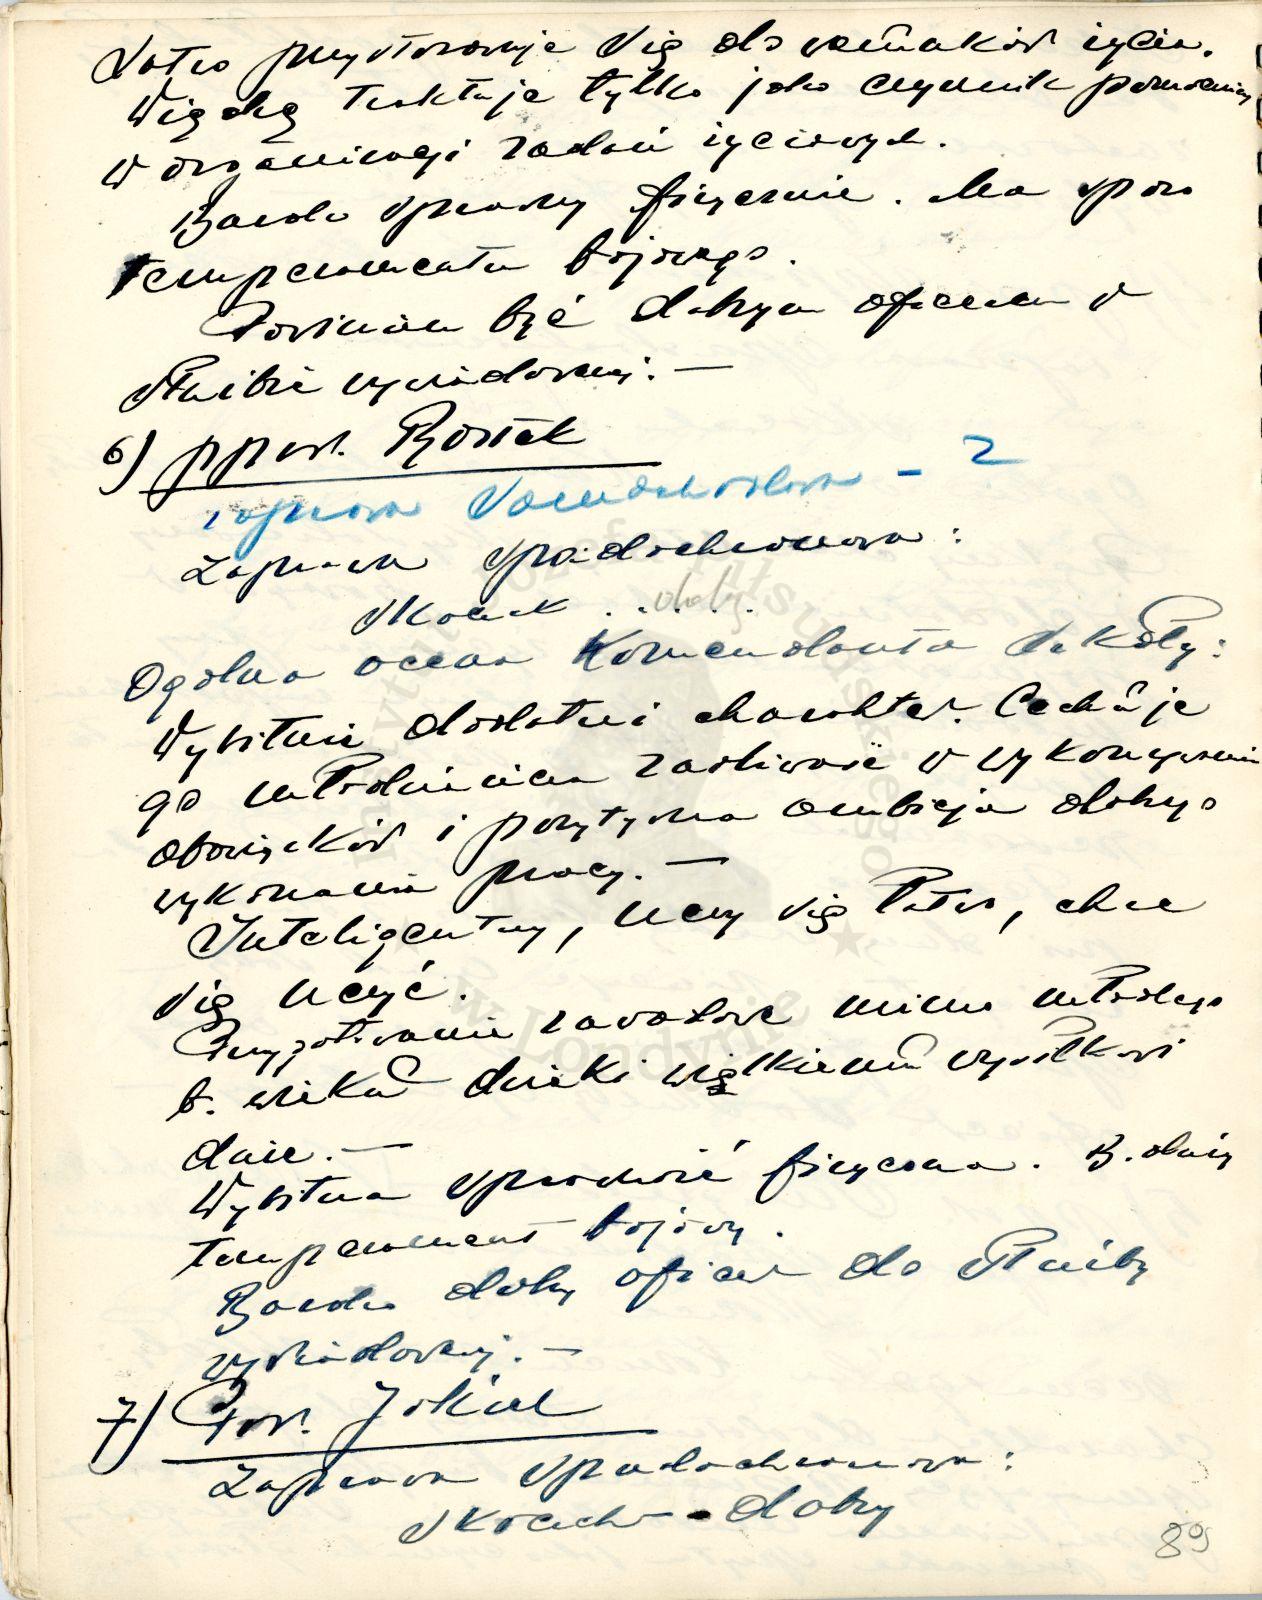 Łatwo przystosowuje się do warunków życia.
Wiedzę traktuje tylko jako czynnik pomocniczy
w organizacji zadań życiowych.
Bardzo sprawny fizycznie. Ma sporo
temperamentu bojowego.
Powinien być dobrym oficerem w
służbie wywiadowczej. —
6) ppor. Rostek
zaprawa samochodowa - 2
Zaprawa spadochronowa:
Skoczek . . . . . dobry
Ogólna ocena Komendanta Szkoły:
Wybitnie dodatni charakter. Cechuje
go młodzieńcza żarliwość w wykonywaniu
obowiązków i pozytywna ambicja dobrego
wykonania pracy. —
Inteligentny, uczy się łatwo, chce
się uczyć.
Przygotowanie zawodowe mimo młodego
b. wieku dzięki wielkiemu wysiłkowi
duże. —
Wybitna sprawność fizyczna. B. duży
temperament bojowy.
Bardzo dobry oficer do służby
wywiadowczej. —
7) Por. Jokiel
Zaprawa spadochronowa:
Skoczek - dobry
89
Instytut Józefa Piłsudskiego w Londynie